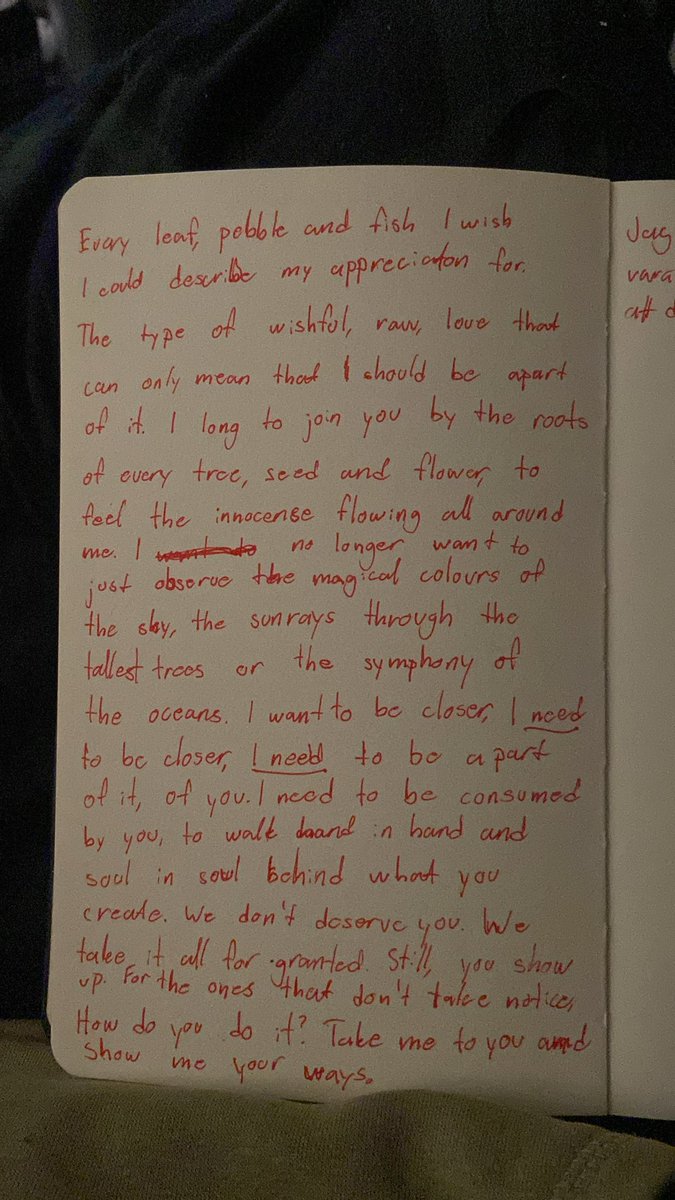 Every leaf, pebble and fish I wish
I could describe my appreciaton for.
The type of wishful, raw, love that
can only mean that I should be apart
of it. I long to join you by the roots
of every tree, seed and flower, to
feel the innocense flowing all around
me. I want to no longer want to
just observe the magical colours of
the sky, the sunrays through the
tallest trees or the symphony of
the oceans. I want to be closer, I need
to be closer, I need to be a part
of it, of you. I need to be consumed
by you, to walk haand in hand and
soul in soul behind what you
create. We don't deserve you. We
take it all for granted. Still, you show
up. For the ones that don't take notice,
How do you do it? Take me to you and
show me your ways.
Jag
vara
att d